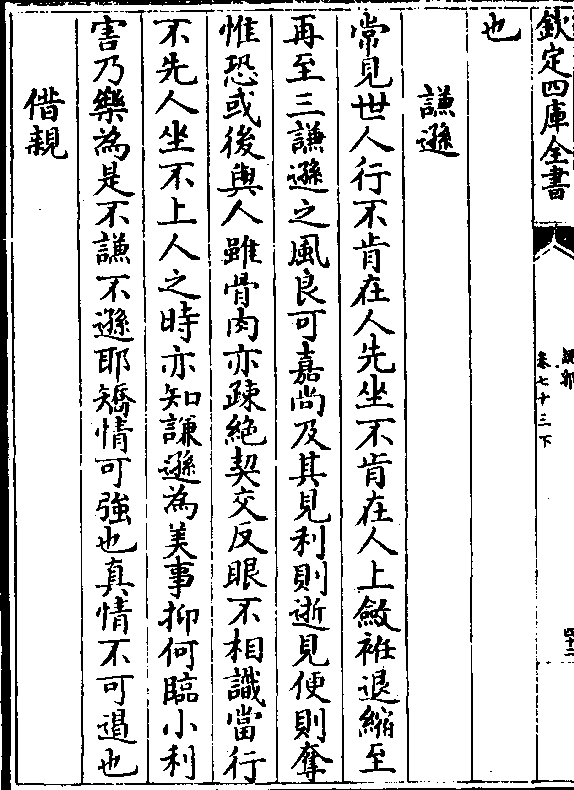 欽定四庫全書
說郛
卷七十三下
四十二
也
謙遜
常見世人行不肯在人先坐不肯在人上斂袵退縮至
再至三謙遜之風良可嘉尚及其見利則逝見便則奪
惟恐或後與人雖骨肉亦疎絶契交反眼不相識當行
不先人坐不上人之時亦知謙遜為美事抑何臨小利
害乃樂為是不謙不遜耶矯情可強也真情不可遏也
偕親